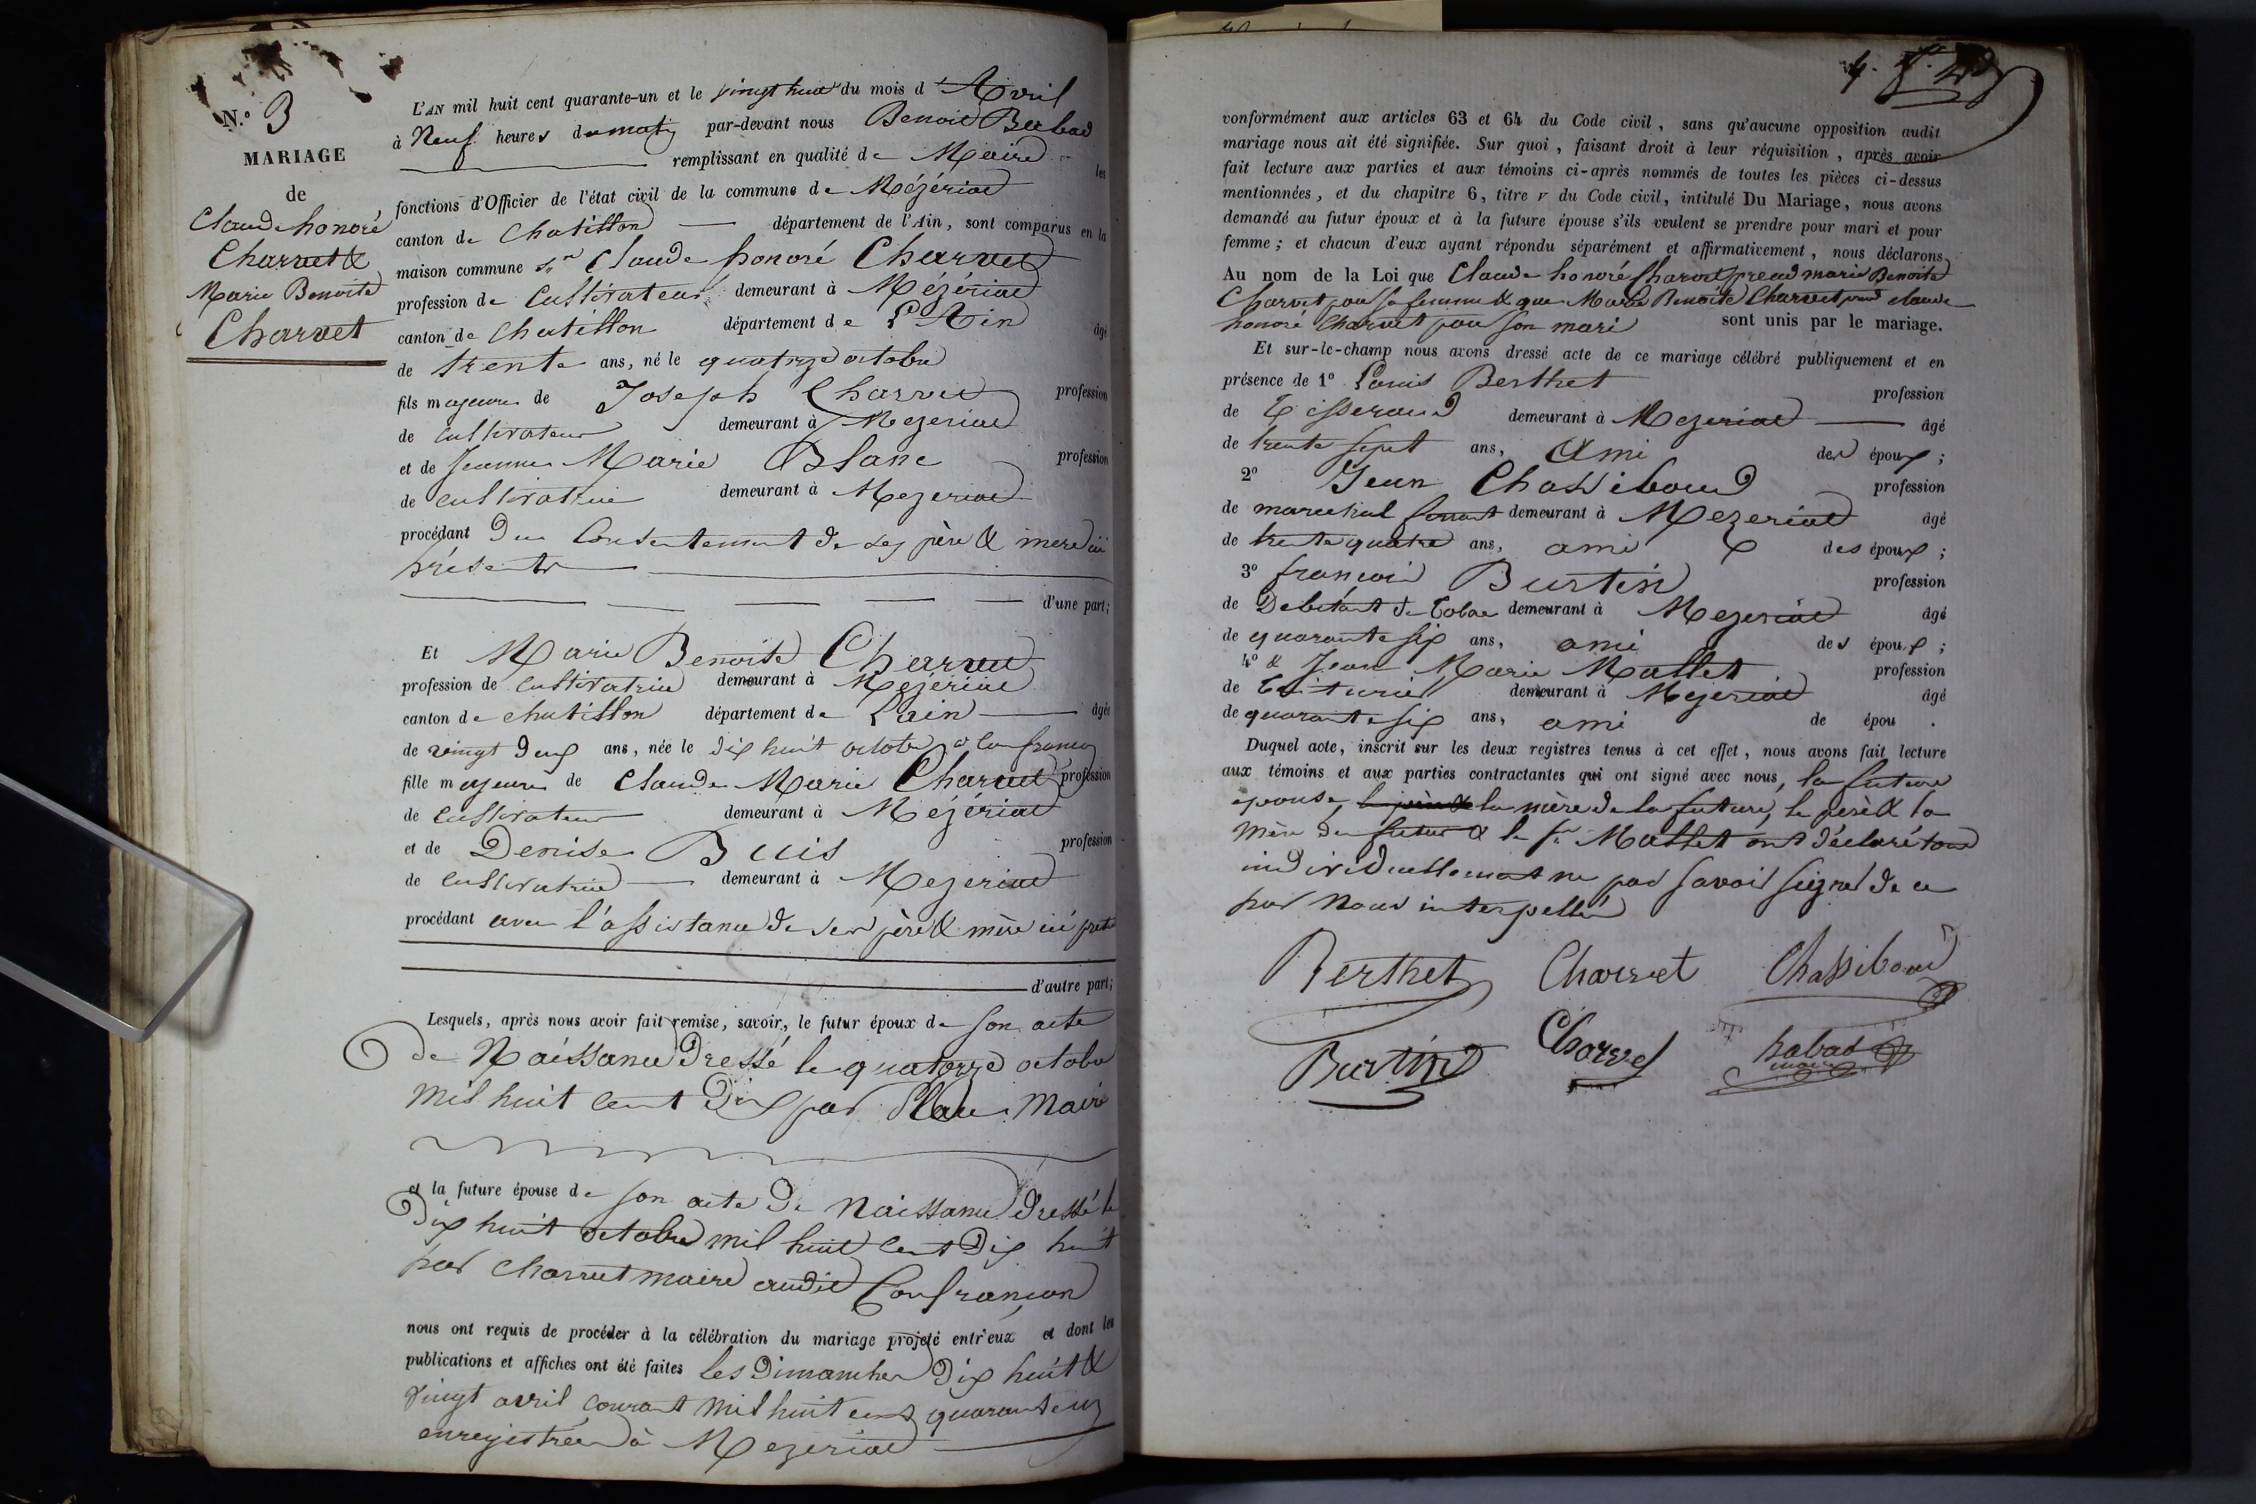 N.º 3
MARIAGE
de
Claude honoré
Charvet &
Marie Benoite
Charvet
L'AN mil huit cent quarante-un et le vingt huit du mois d'Avril
à Neuf heures du matin par-devant nous Benoit Babad
remplissant en qualité de Maire les
fonctions d'Officier de l'état civil de la commune de Mézériat
canton de Chatillon département de l'Ain, sont comparus en la
maison commune Sr Claude honoré Charvet
profession de Cultivateur demeurant à Mézériat
canton de Chatillon département de L'Ain âgé
de trente ans, né le quatorze octobre
fils majeur de Joseph Charvet profession
de cultivateur demeurant à Mezeriat
et de Jeanne Marie Blanc profession
de cultivatrice demeurant à Mezeriat
procédant du Consentement de ses père & mere ici
présents
d'une part;
Et Marie Benoite Charvet
profession de cultivatrice demeurant à Mézériat
canton de chatillon département de L'ain âgée
de vingt deux ans, née le dix huit octobre à Confrançon
fille majeure de Claude Marie Charvet profession
de Cultivateur demeurant à Mézériat
et de Denise Buis profession
de cultivatrice demeurant à Mezeriat
procédant avec l'assistance de ses père & mère ici pnts
d'autre part;
Lesquels, après nous avoir fait remise, savoir, le futur époux de son acte
de Naissance Dressé le quatorze octobre
mil huit cent Dix par Maire
et la future épouse de son acte de Naissance Dressé le
Dix huit octobre mil huit cent Dix huit
par Charvet maire audit Confrançon
nous ont requis de procéder à la célébration du mariage projeté entr'eux et dont les
publications et affiches ont été faites les Dimanches Dix huit &
vingt avril courant mil huit cent quarante un
enregistrées à Mezeriat
4.
conformément aux articles 63 et 64 du Code civil, sans qu'aucune opposition audit
mariage nous ait été signifiée. Sur quoi, faisant droit à leur réquisition, après avoir
fait lecture aux parties et aux témoins ci-après nommés de toutes les pièces ci-dessus
mentionnées, et du chapitre 6, titre v du Code civil, intitulé Du Mariage, nous avons
demandé au futur époux et à la future épouse s'ils veulent se prendre pour mari et pour
femme; et chacun d'eux ayant répondu séparément et affirmativement, nous déclarons
Au nom de la Loi que Claude honoré Charvet prend marie Benoite
Charvet pour sa femme & que Marie Benoite Charvet prend claude
honoré Charvet pour son mari sont unis par le mariage.
Et sur-le-champ nous avons dressé acte de ce mariage célébré publiquement et en
présence de 1º Louis Berthet profession
de Tisserand demeurant à Mezeriat âgé
de trente sept ans, Ami des époux;
2º Jean Chassiboud profession
de marechal ferrant demeurant à Mezeriat âgé
de trente quatre ans, ami des époux;
3º françois Burtin profession
de Debitant de Tabac demeurant à Mezeriat âgé
de quarante six ans, ami des époux;
4º & Jean Marie Mallet profession
de Teinturier demeurant à Mezeriat âgé
de quarante six ans, ami de épou .
Duquel acte, inscrit sur les deux registres tenus à cet effet, nous avons fait lecture
aux témoins et aux parties contractantes qui ont signé avec nous, la future
epouse, le père & la mère de la future, le père & la
mère du futur & le Sr Mallet ont déclaré tous
individuellement ne pas savoir signer de ce
par Nous interpellés
Berthet Charvet Chassiboud
Burtin Charvet Babad
maire